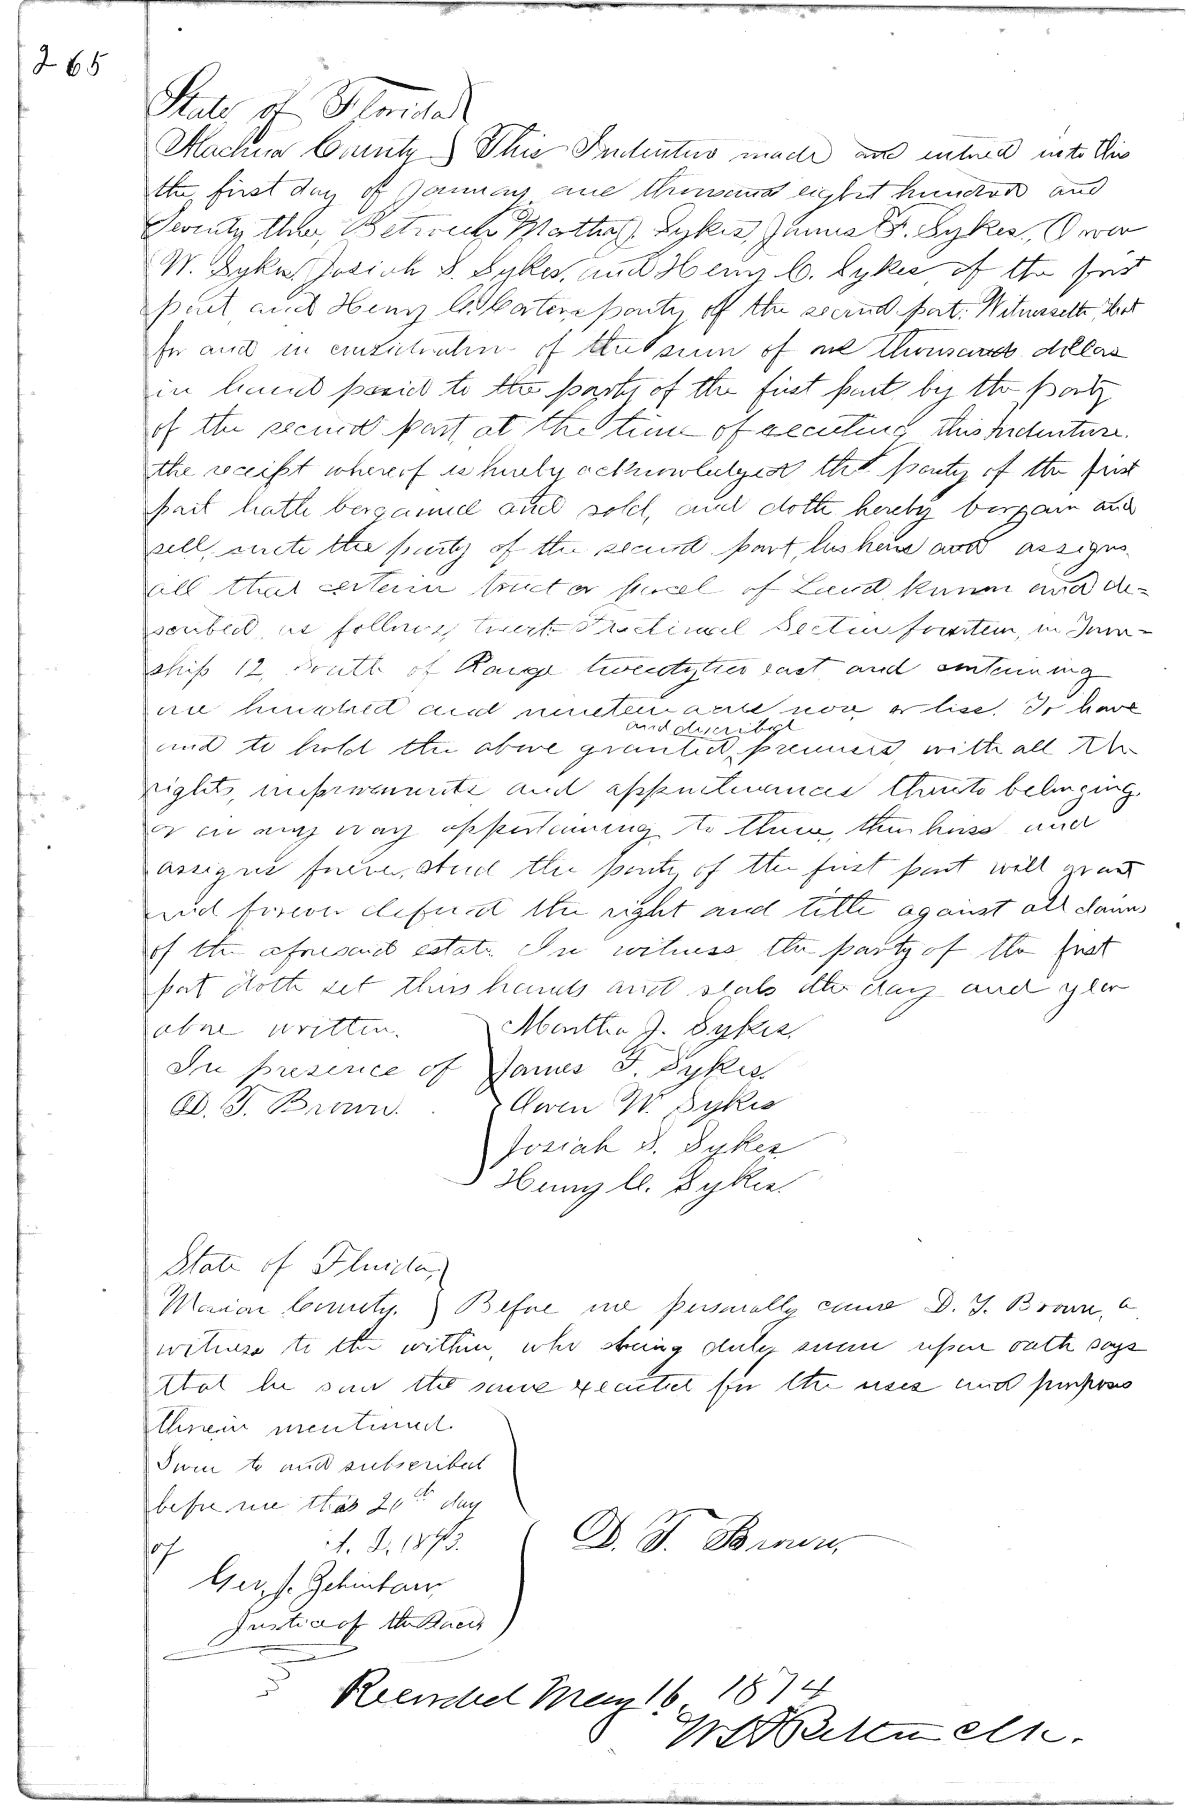 265
State of Florida
Alachua County } This Indenture made and entered into this
the first day of January one thousand eight hundred and
Seventy three, Between Martha J. Sykes, James F. Sykes, Owen
W. Sykes, Josiah S. Sykes, and Henry C. Sykes, of the first
part, and Henry C. Carter party of the second part: Witnesseth, that
for and in consideration of the sum of one thousand dollars
in hand paid to the party of the first part by the party
of the second part at the time of executing this Indenture.
the receipt whereof is hereby acknowledged the party of the first
part hath bargained and sold, and doth hereby bargain and
sell, unto the party of the second part, his heirs and assigns
all that certain tract or parcel of Land known and de-
scribed as follows, Fractional Section fourteen, in Town-
ship 12 South of Range twenty two east and containing
one hundred and nineteen acres more or less. To have
and described
and to hold the above granted premises, with all the
rights, improvements and appurtenances thereto belonging,
or in any way appertaining to them, their heirs and
assigns forever, And the party of the first part will grant
and forever defend the right and title against all claims
of the aforesaid estate. In witness the party of the first
part doth set their hands and seals the day and year
above written. Martha J. Sykes.
In presence of James F. Sykes.
D. T. Brown. Owen W. Sykes
Josiah S. Sykes
Henry C. Sykes.
State of Florida,
Marion County. } Before me personally came D. T. Brown, a
witness to the within, who being duly sworn upon oath says
that he saw the same executed for the uses and purposes
therein mentioned.
Sworn to and subscribed
before me this 20th day
of A. D. 1873. D. T. Brown,
Geo. J.
Justice of the Peace
Recorded May 16, 1874
Clk.